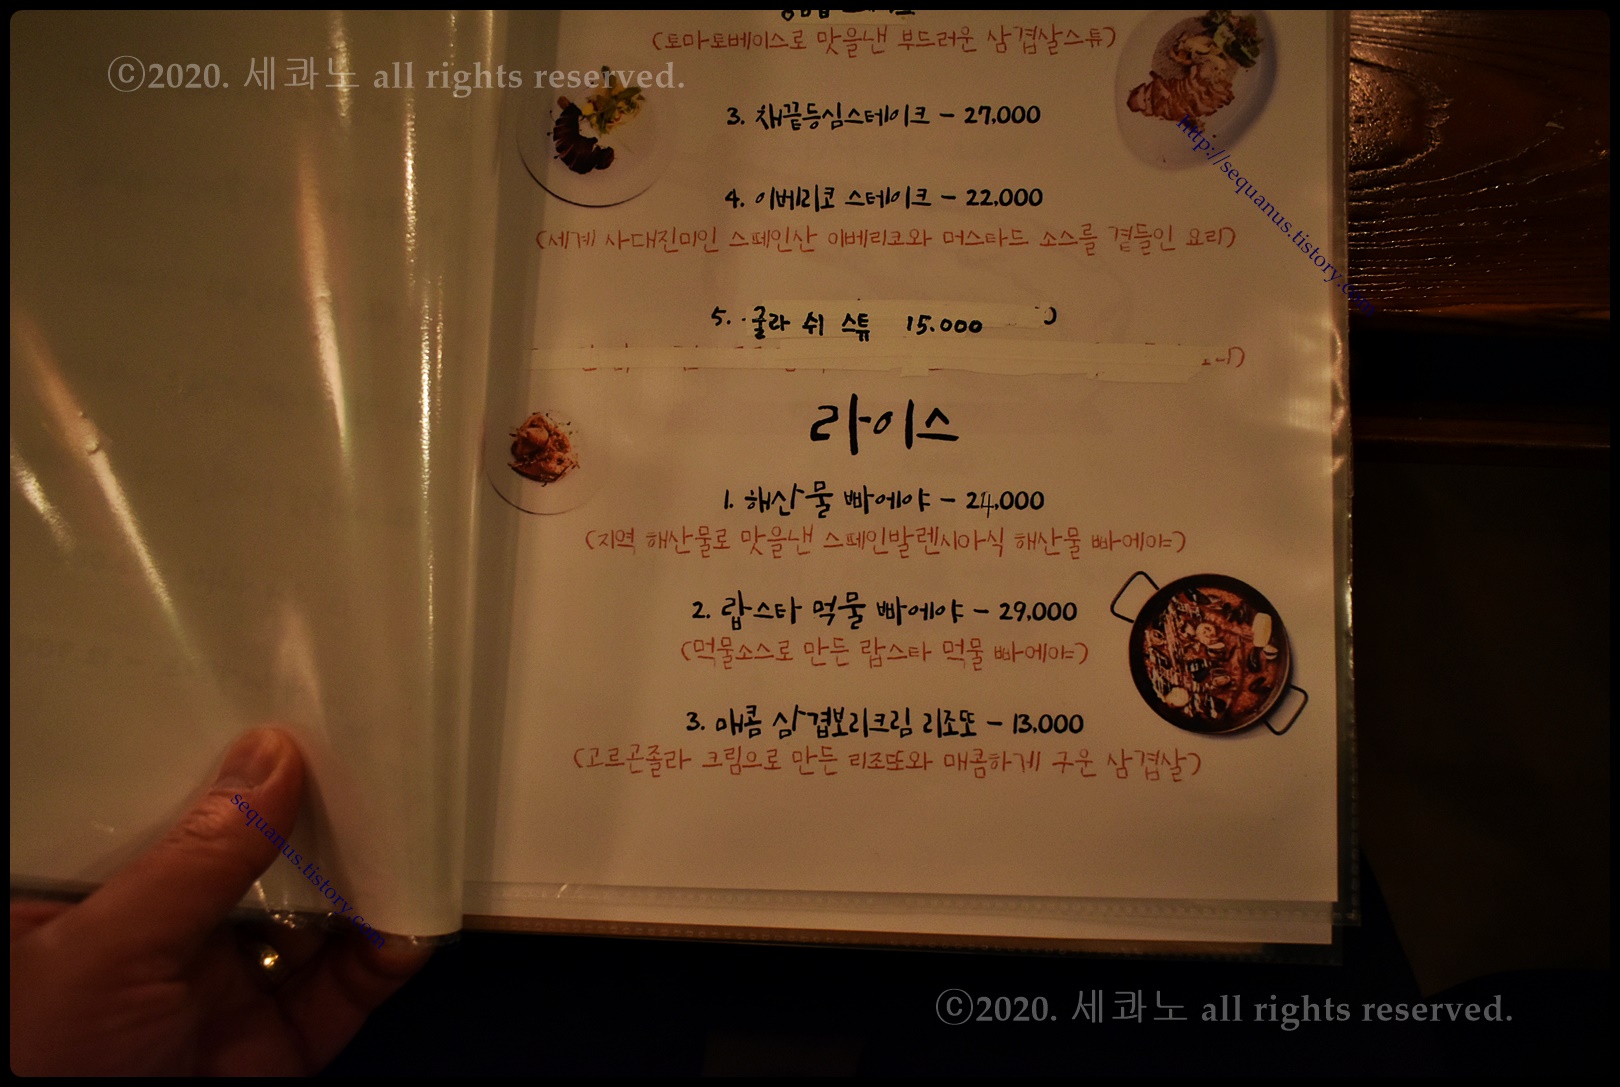 (토마토베이스로 맛을낸 부드러운 삼겹살스튜)
ⓒ2020. 세콰노 all rights reserved.
3. 채끝등심스테이크 - 27,000
http://sequanus.tistory.com
4. 이베리코 스테이크 - 22,000
(세계 사대진미인 스페인산 이베리코와 머스타드 소스를 곁들인 요리)
5. 굴라 쉬 스튜 15.000
라이스
1. 해산물 빠에야 - 24,000
(지역 해산물로 맛을낸 스페인발렌시아식 해산물 빠에야)
2. 랍스타 먹물 빠에야 - 29,000
(먹물소스로 만든 랍스타 먹물 빠에야)
3. 매콤 삼겹보리크림 리조또 - 13,000
(고르곤졸라 크림으로 만든 리조또와 매콤하게 구운 삼겹살)
sequanus.tistory.com
ⓒ2020. 세콰노 all rights reserved.